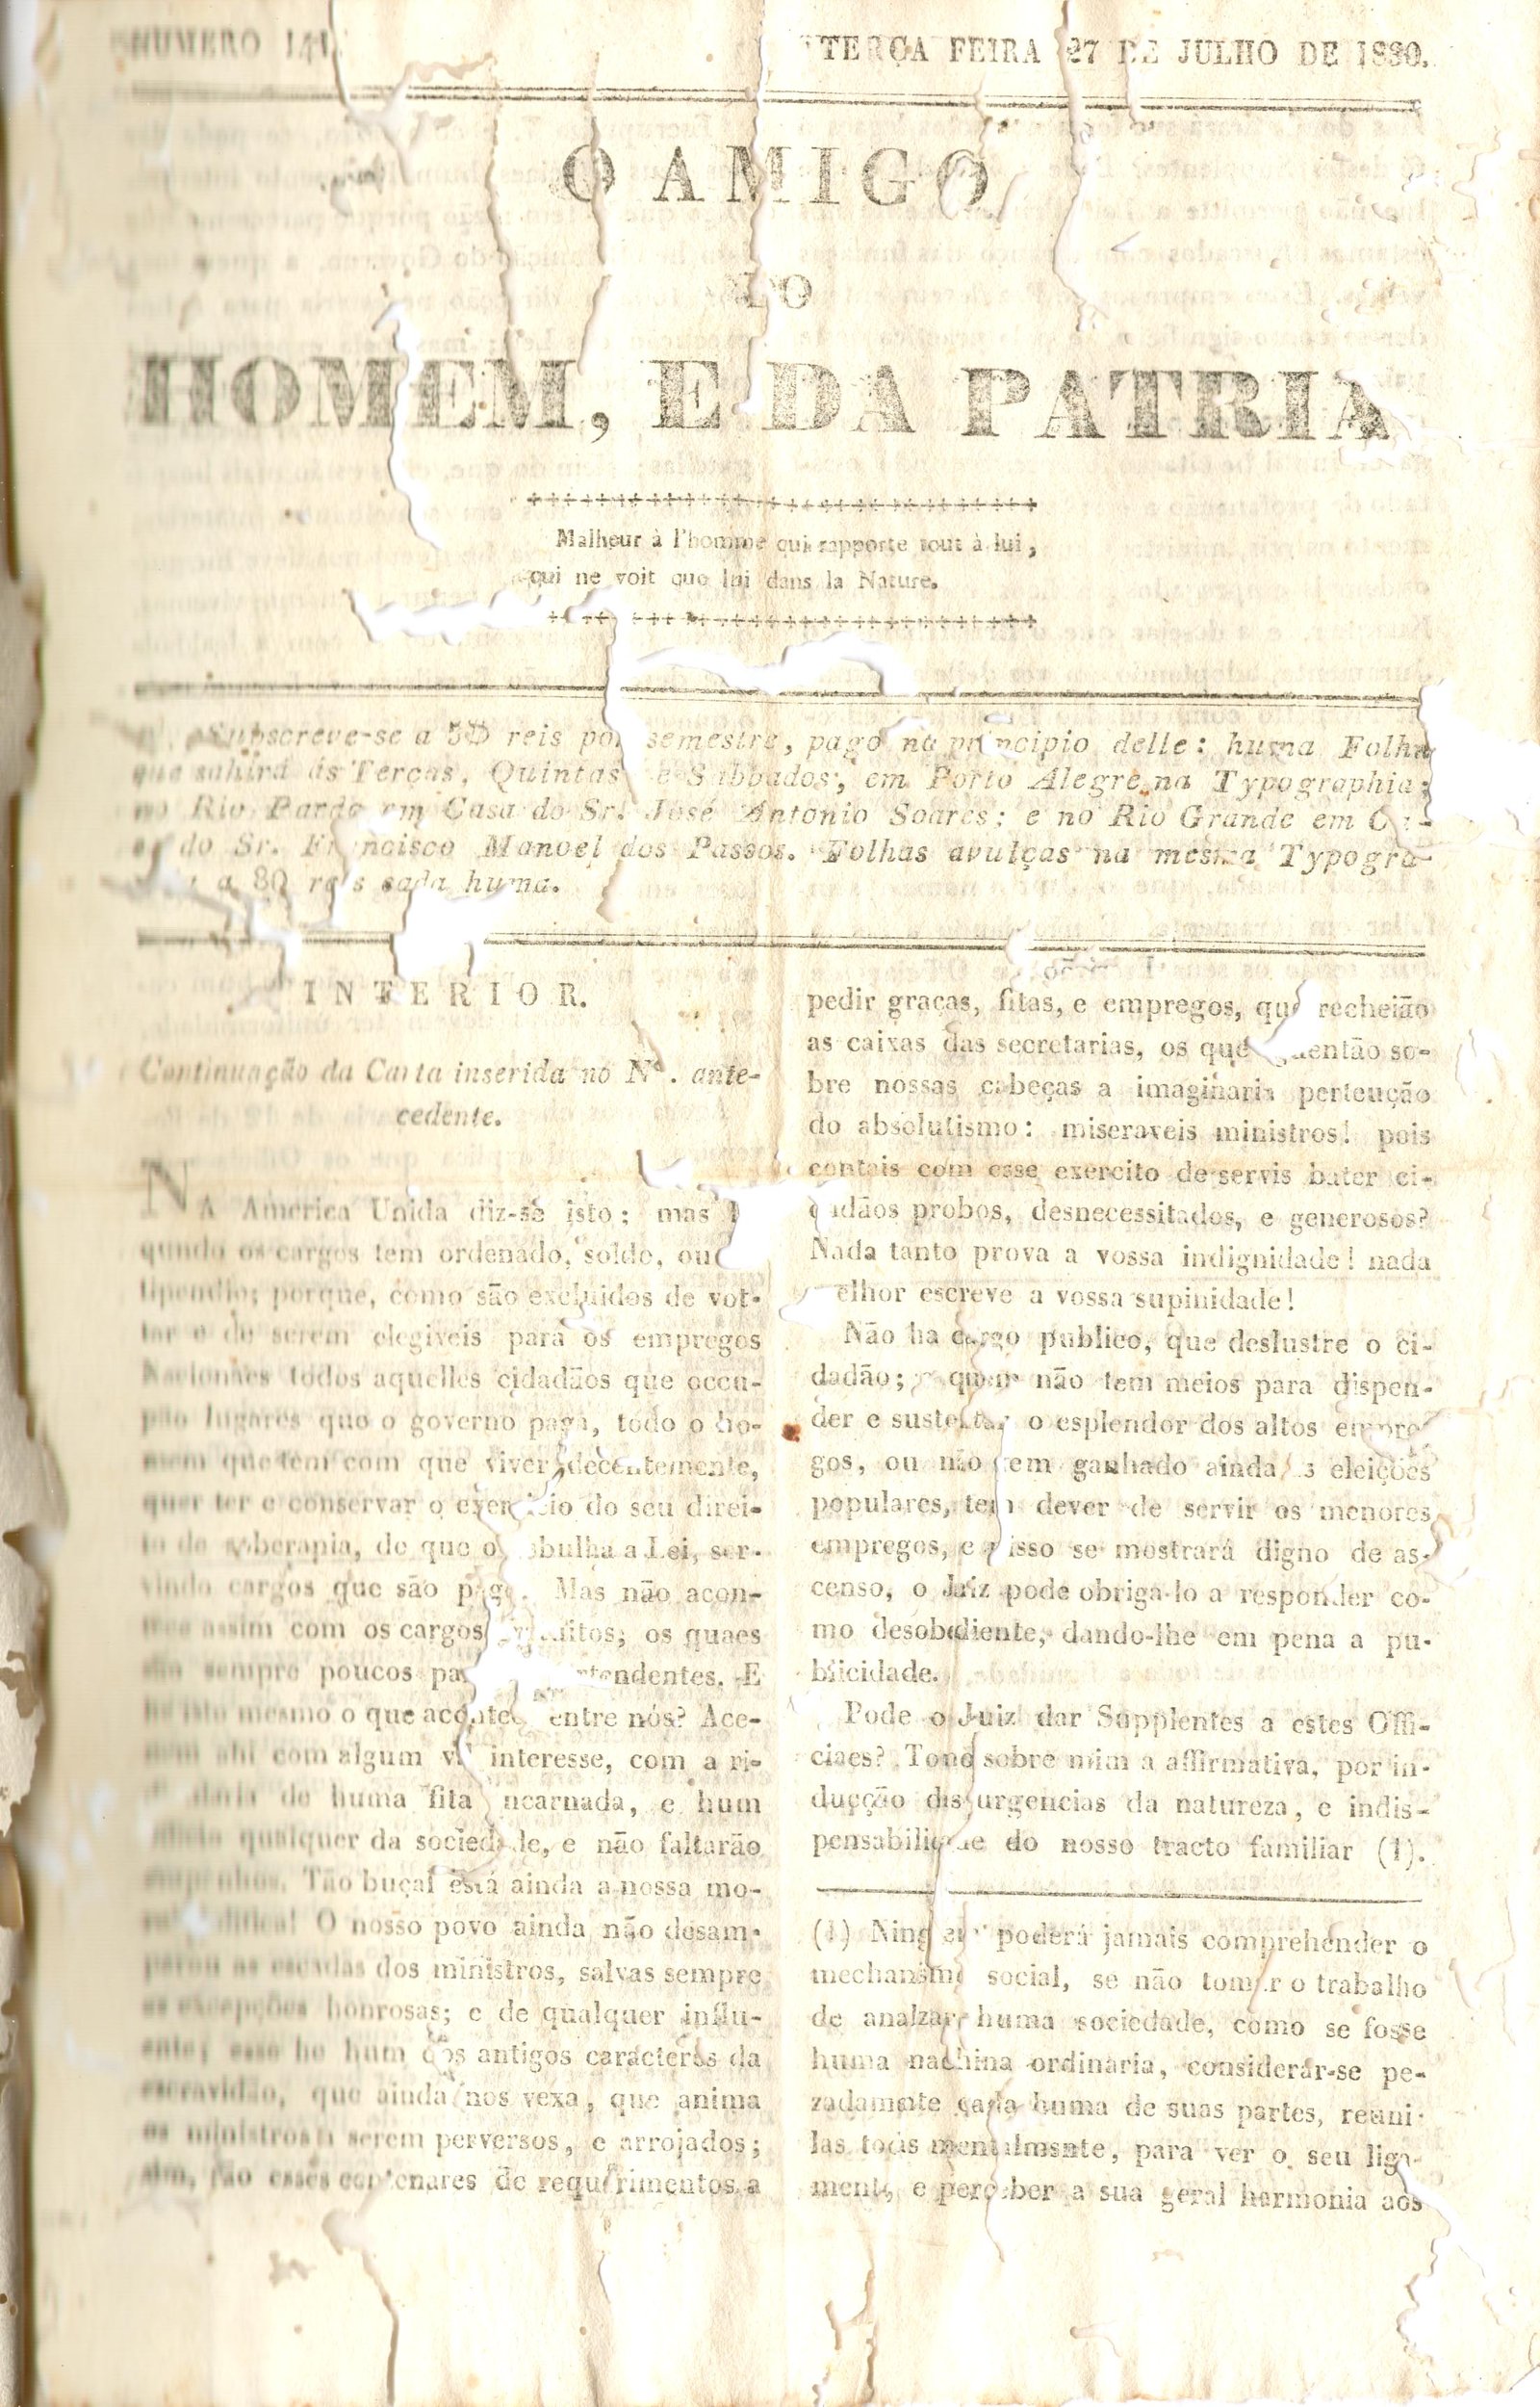 NUMERO 141
TERÇA FEIRA 27 DE JULHO DE 1830.
O AMIGO
DO
HOMEM, E DA PATRIA
Malheur à l'homme qui rapporte tout à lui,
qui ne voit que lui dans la Nature.
Subscreve-se a 5$ reis por semestre, pago no principio delle: huma Folha
que sahirá ás Terças, Quintas e Sabbados, em Porto Alegre na Typographia;
no Rio Pardo em Casa do Sr. José Antonio Soares; e no Rio Grande em Ca-
do Sr. Francisco Manoel dos Passos. Folhas avulças na mesma Typogra-
a 80 reis cada huma.
INTERIOR.
Continuação da Carta inserida no Nº. ante-
cedente.
NA America Unida diz-se isto; mas
qundo os cargos tem ordenado, soldo, ou
tipendio; porque, como são excluidos de vot-
tar e de serem elegiveis para os empregos
Nacionaes todos aquelles cidadãos que occu-
pão lugares que o governo paga, todo o ho-
mem que tem com que viver decentemente,
quer ter e conservar o exercicio do seu direi-
to de soberania, de que o esbulha a Lei, ser-
vindo cargos que são pagos. Mas não acon-
tece assim com os cargos gratuitos; os quaes
são sempre poucos para pretendentes. E
he isto mesmo o que acontece entre nós? Ace-
nem ahi com algum vil interesse, com a ri-
de huma fita encarnada, e hum
qualquer da sociedade, e não faltarão
empenhos. Tão buçal está ainda a nossa mo-
O nosso povo ainda não desam-
parou as escadas dos ministros, salvas sempre
as excepções honrosas; e de qualquer influ-
ente; esse he hum dos antigos caracteres da
escravidão, que ainda nos vexa, que anima
os ministros a serem perversos, e arrojados;
sim, são esses centenares de requerimentos a
pedir graças, fitas, e empregos, que recheião
as caixas das secretarias, os que aguentão so-
bre nossas cabeças a imaginaria pertenção
do absolutismo: miseraveis ministros! pois
contais com esse exercito de servis bater ci-
dadãos probos, desnecessitados, e generosos?
Nada tanto prova a vossa indignidade! nada
melhor escreve a vossa supinidade!
Não ha cargo publico, que deslustre o ci-
dadão; quem não tem meios para dispen-
der e sustentar o esplendor dos altos empre-
gos, ou não tem ganhado ainda as eleições
populares, tem dever de servir os menores
empregos, e nisso se mostrará digno de as-
censo, o Juiz pode obriga-lo a responder co-
mo desobediente, dando-lhe em pena a pu-
blicidade.
Pode o Juiz dar Supplentes a estes Offi-
ciaes? Tomo sobre mim a affirmativa, por in-
ducção das urgencias da natureza, e indis-
pensabilidade do nosso tracto familiar (1).
(1) Ninguem poderá jamais comprehender o
mechanismo social, se não tomar o trabalho
de analzar huma sociedade, como se fosse
huma machina ordinaria, considerar-se pe-
zadamente cada huma de suas partes, reuni-
las todas mentalmsnte, para ver o seu liga-
mento, e perceber a sua geral harmonia aos